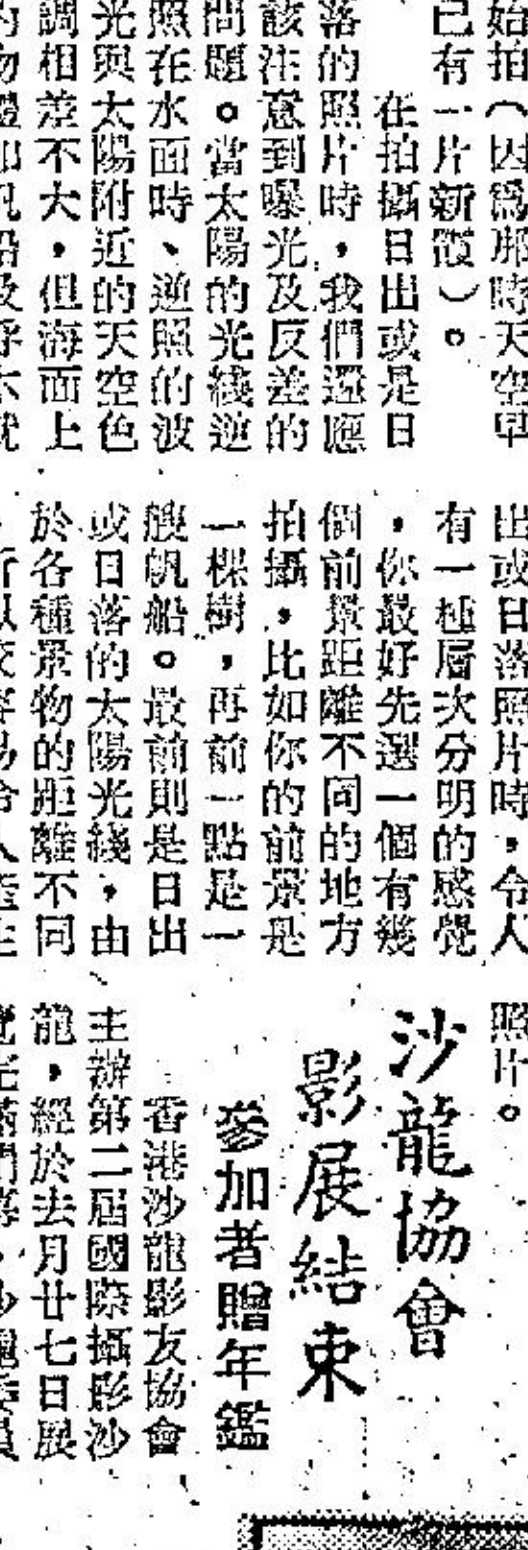 始拍（因爲那時天空早
已有一片新霞）。
在拍攝日出或是日
落的照片時，我們還應
該注意到曝光及反差的
問題。當太陽的光綫逆
照在水面時、逆照的波
光與太陽附近的天空色
調相差不大，但海面上
出或日落照片時，令人
有一種層次分明的感覺
，你最好先選一個有幾
個前景距離不同的地方
拍攝，比如你的前景是
一棵樹，再前一點是一
艘帆船。最前則是日出
或日落的太陽光綫，由
於各種景物的距離不同
照片。
沙龍協會
影展結束
參加者贈年鑑
香港沙龍影友協會
主辦第二屆國際攝影沙
龍，經於去月廿七日展